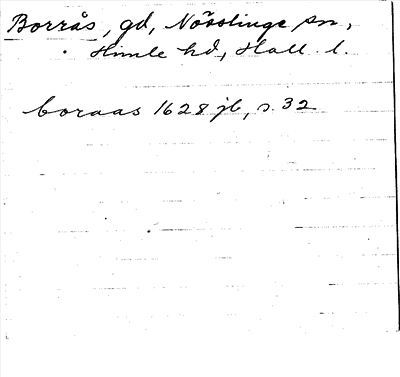 Borrås, gd, Nösslinge sn,
Himle hd, Hall. l.
boraas 1628 jb, s. 32